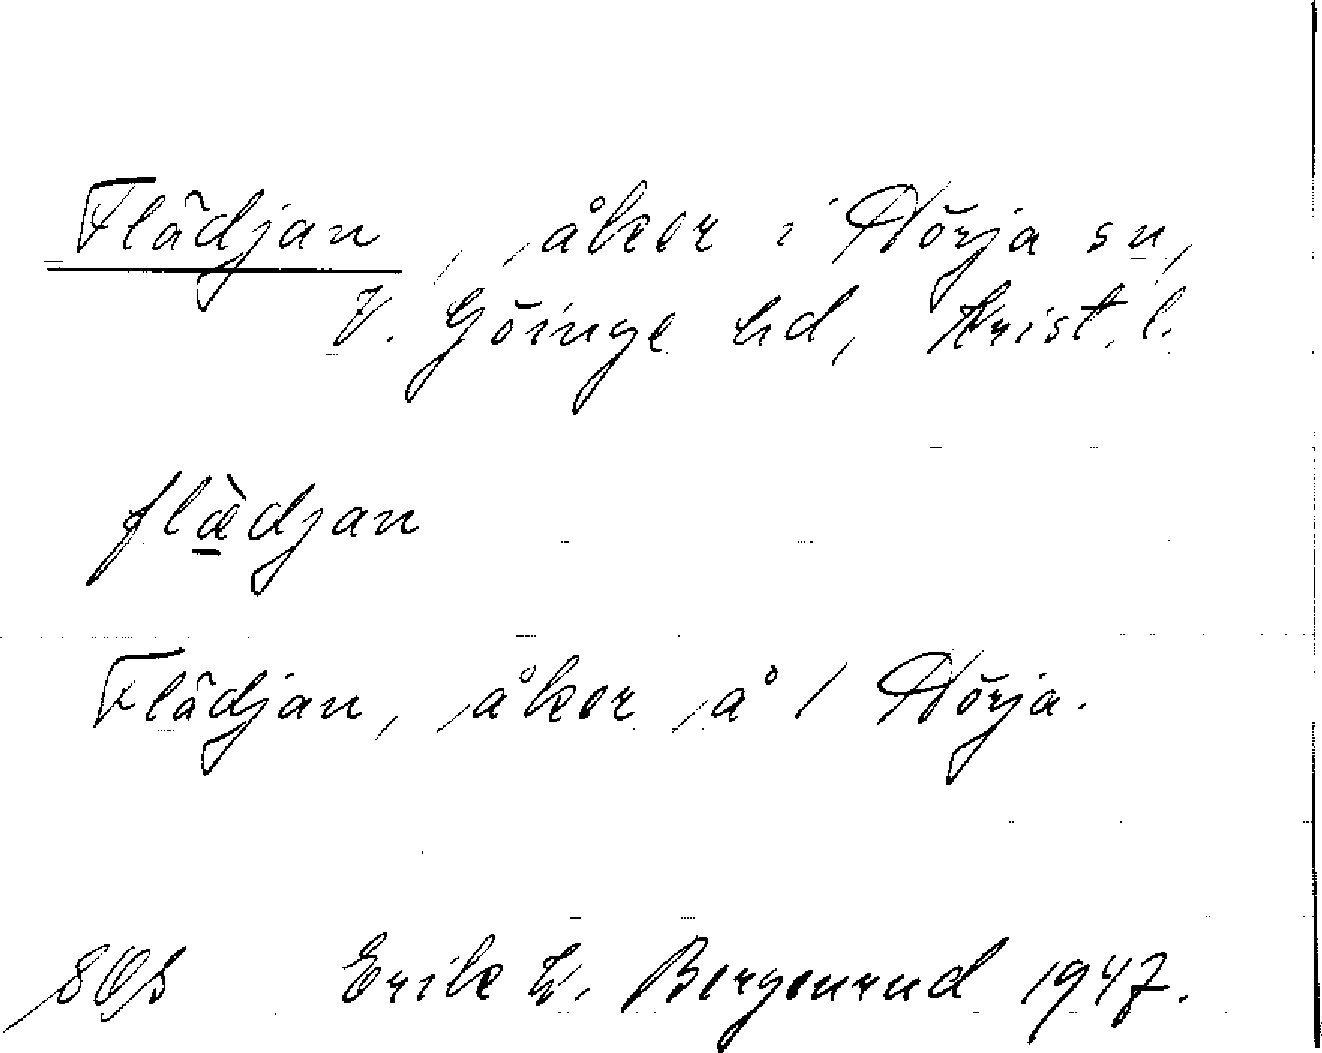 Flädjan, åker i Nörja sn,
V. Göinge hd, Krist. l.
flæ̀djan
Flädjan, åker å 1 Nörja.
Erik W. Bergenrud 1947.